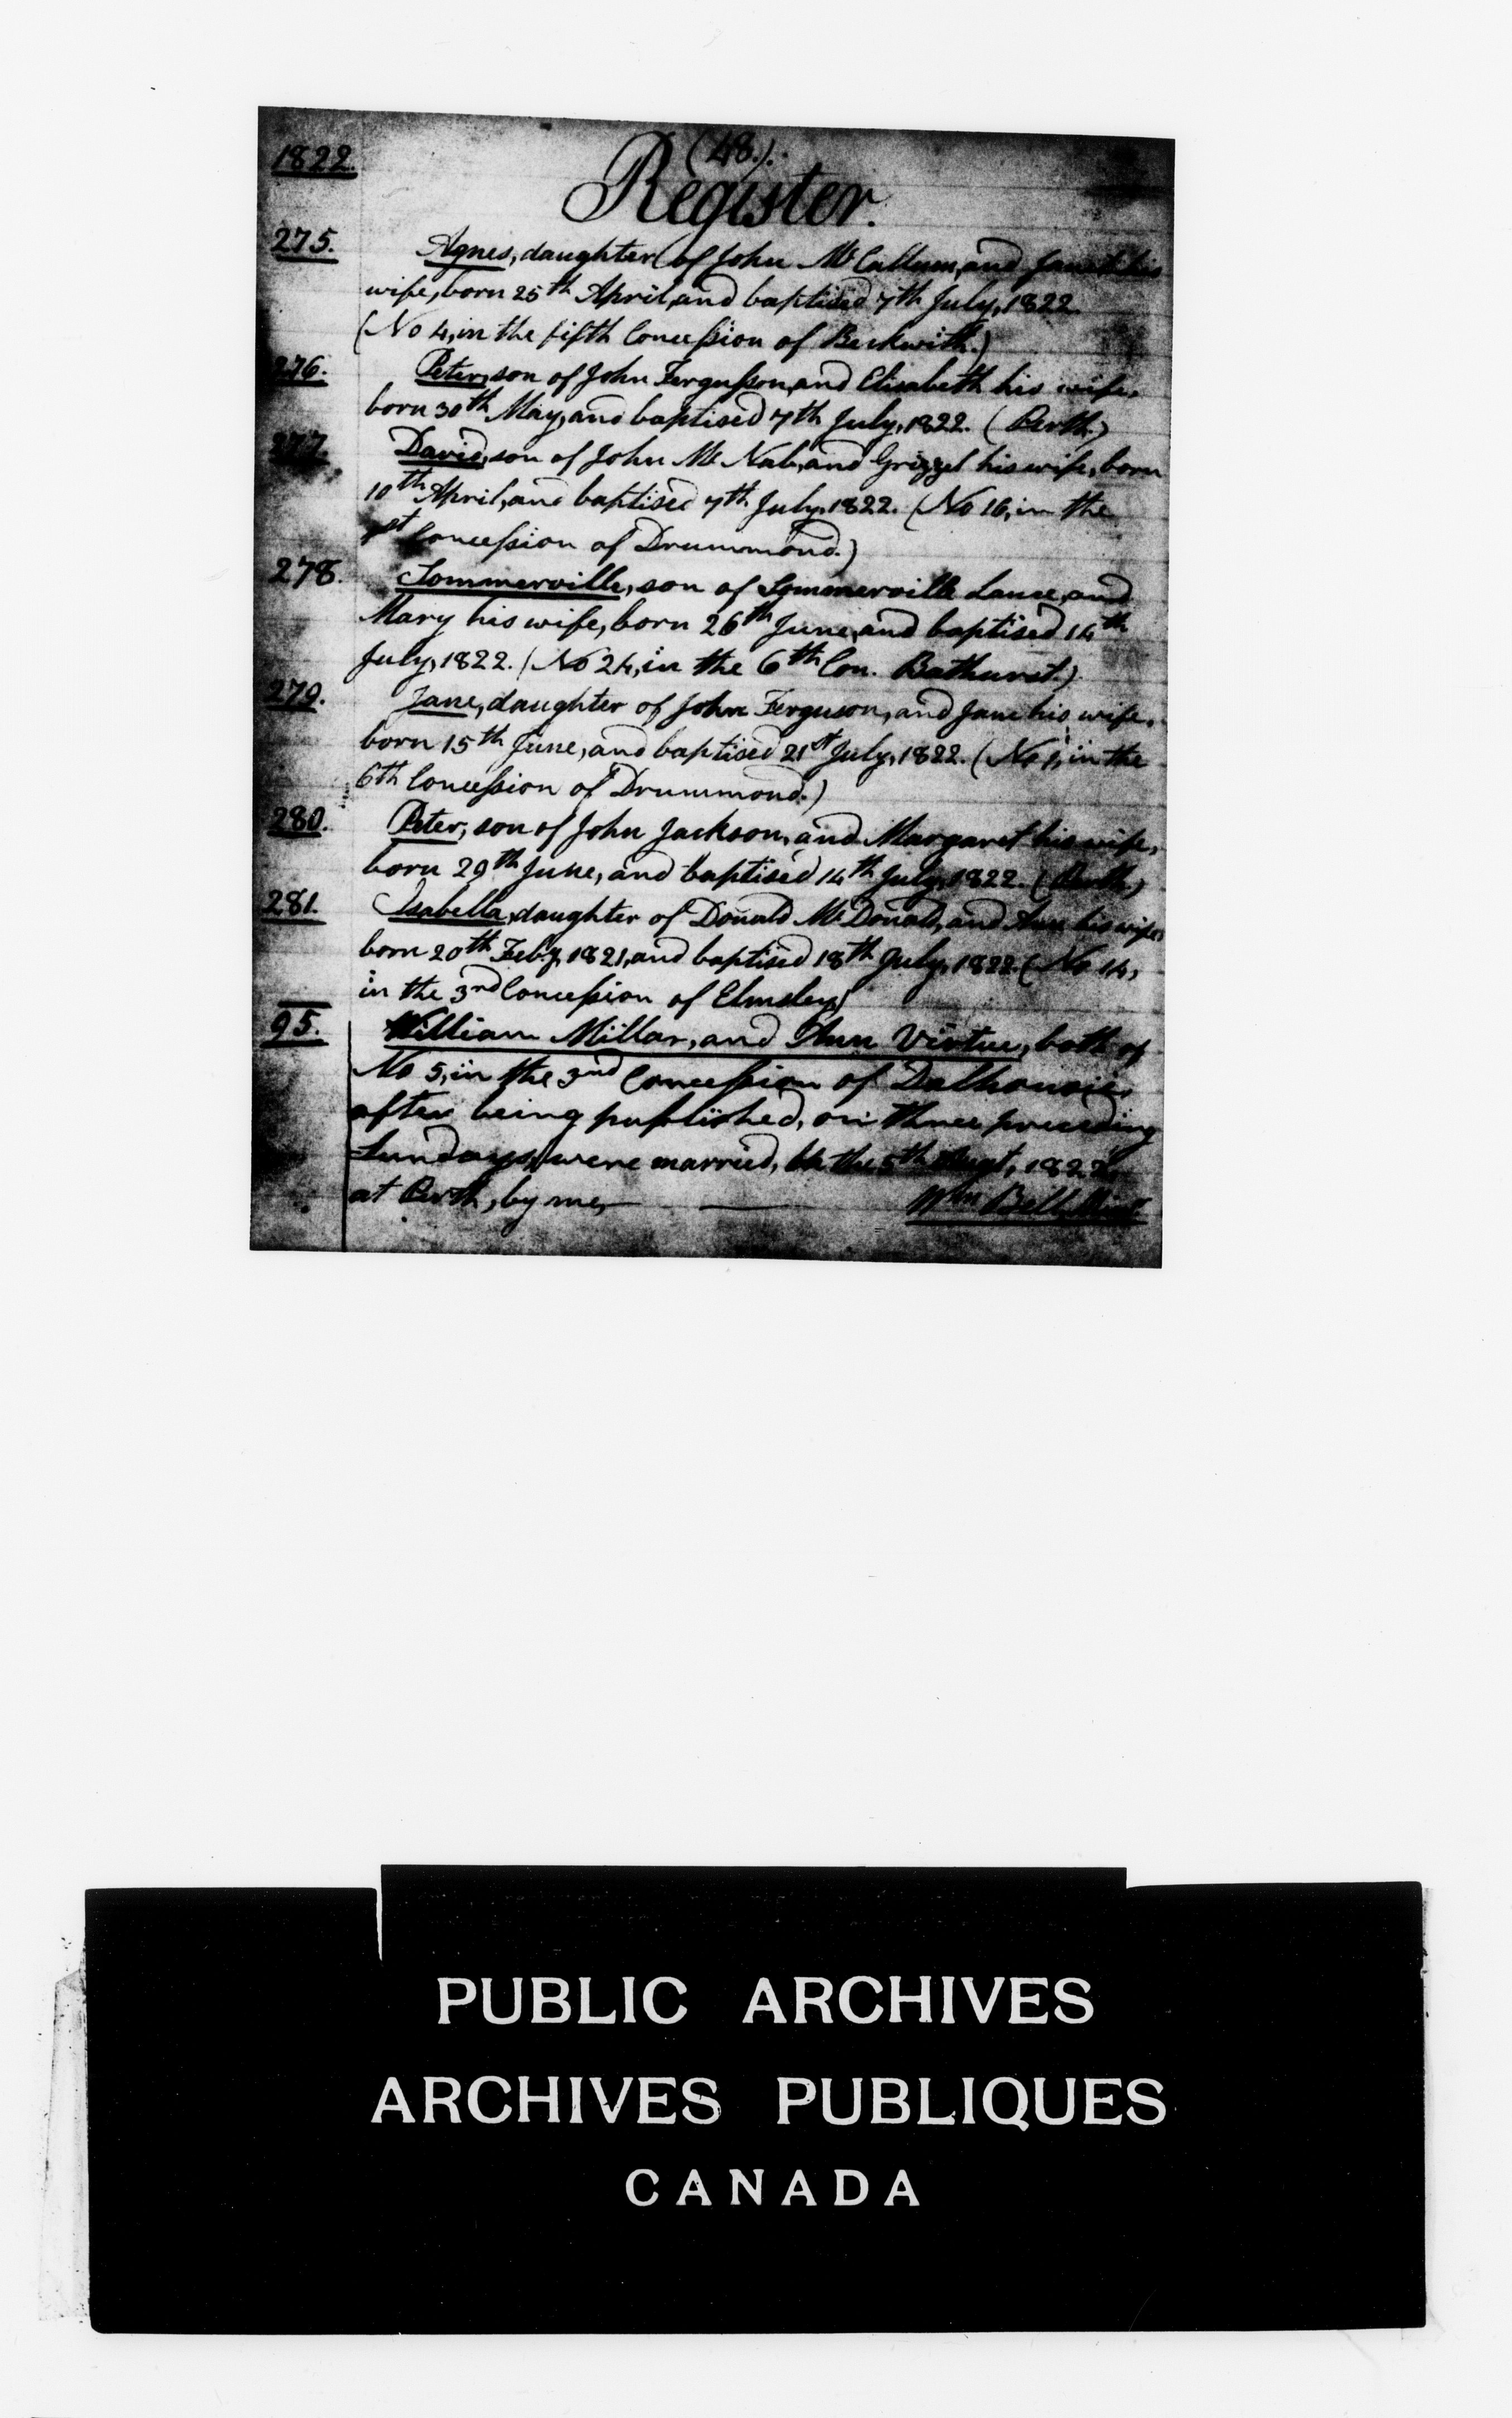 (48.)
1822.
Register.
275. Agnes, daughter of John Mc Callum, and Janet his
wife, born 25th April, and baptised 7th July, 1822.
(No 4, in the fifth Concession of Beckwith.)
276. Peter, son of John Fergusson, and Elisabeth his wife,
born 30th May, and baptised 7th July, 1822. (Perth.)
277. David, son of John Mc Nab, and Grizzel his wife, born
10th April, and baptised 7th July, 1822. (No 16, in the
1st Concession of Drummond.)
278. Sommerville, son of Sommerville Lance, and
Mary his wife, born 26th June, and baptised 14th
July, 1822. (No 24, in the 6th Con. Bathurst.)
279. Jane, daughter of John Ferguson, and Jane his wife,
born 15th June, and baptised 21st July, 1822. (No 1, in the
6th Concession of Drummond.)
280. Peter, son of John Jackson, and Margaret his wife,
born 29th June, and baptised 14th July, 1822. (Perth.)
281. Isabella, daughter of Donald Mc Donald, and Ann his wife,
born 20th Feby, 1821, and baptised 18th July, 1822. (No 14,
in the 3rd Concession of Elmsley)
95. William Millar, and Ann Virtue, both of
No 5, in the 3nd Concession of Dalhousie,
after being published, on three preceding
Sundays, were married, the 5th Augt, 1822,
at Perth, by me, Wm Bell, Minr
PUBLIC ARCHIVES
ARCHIVES PUBLIQUES
CANADA